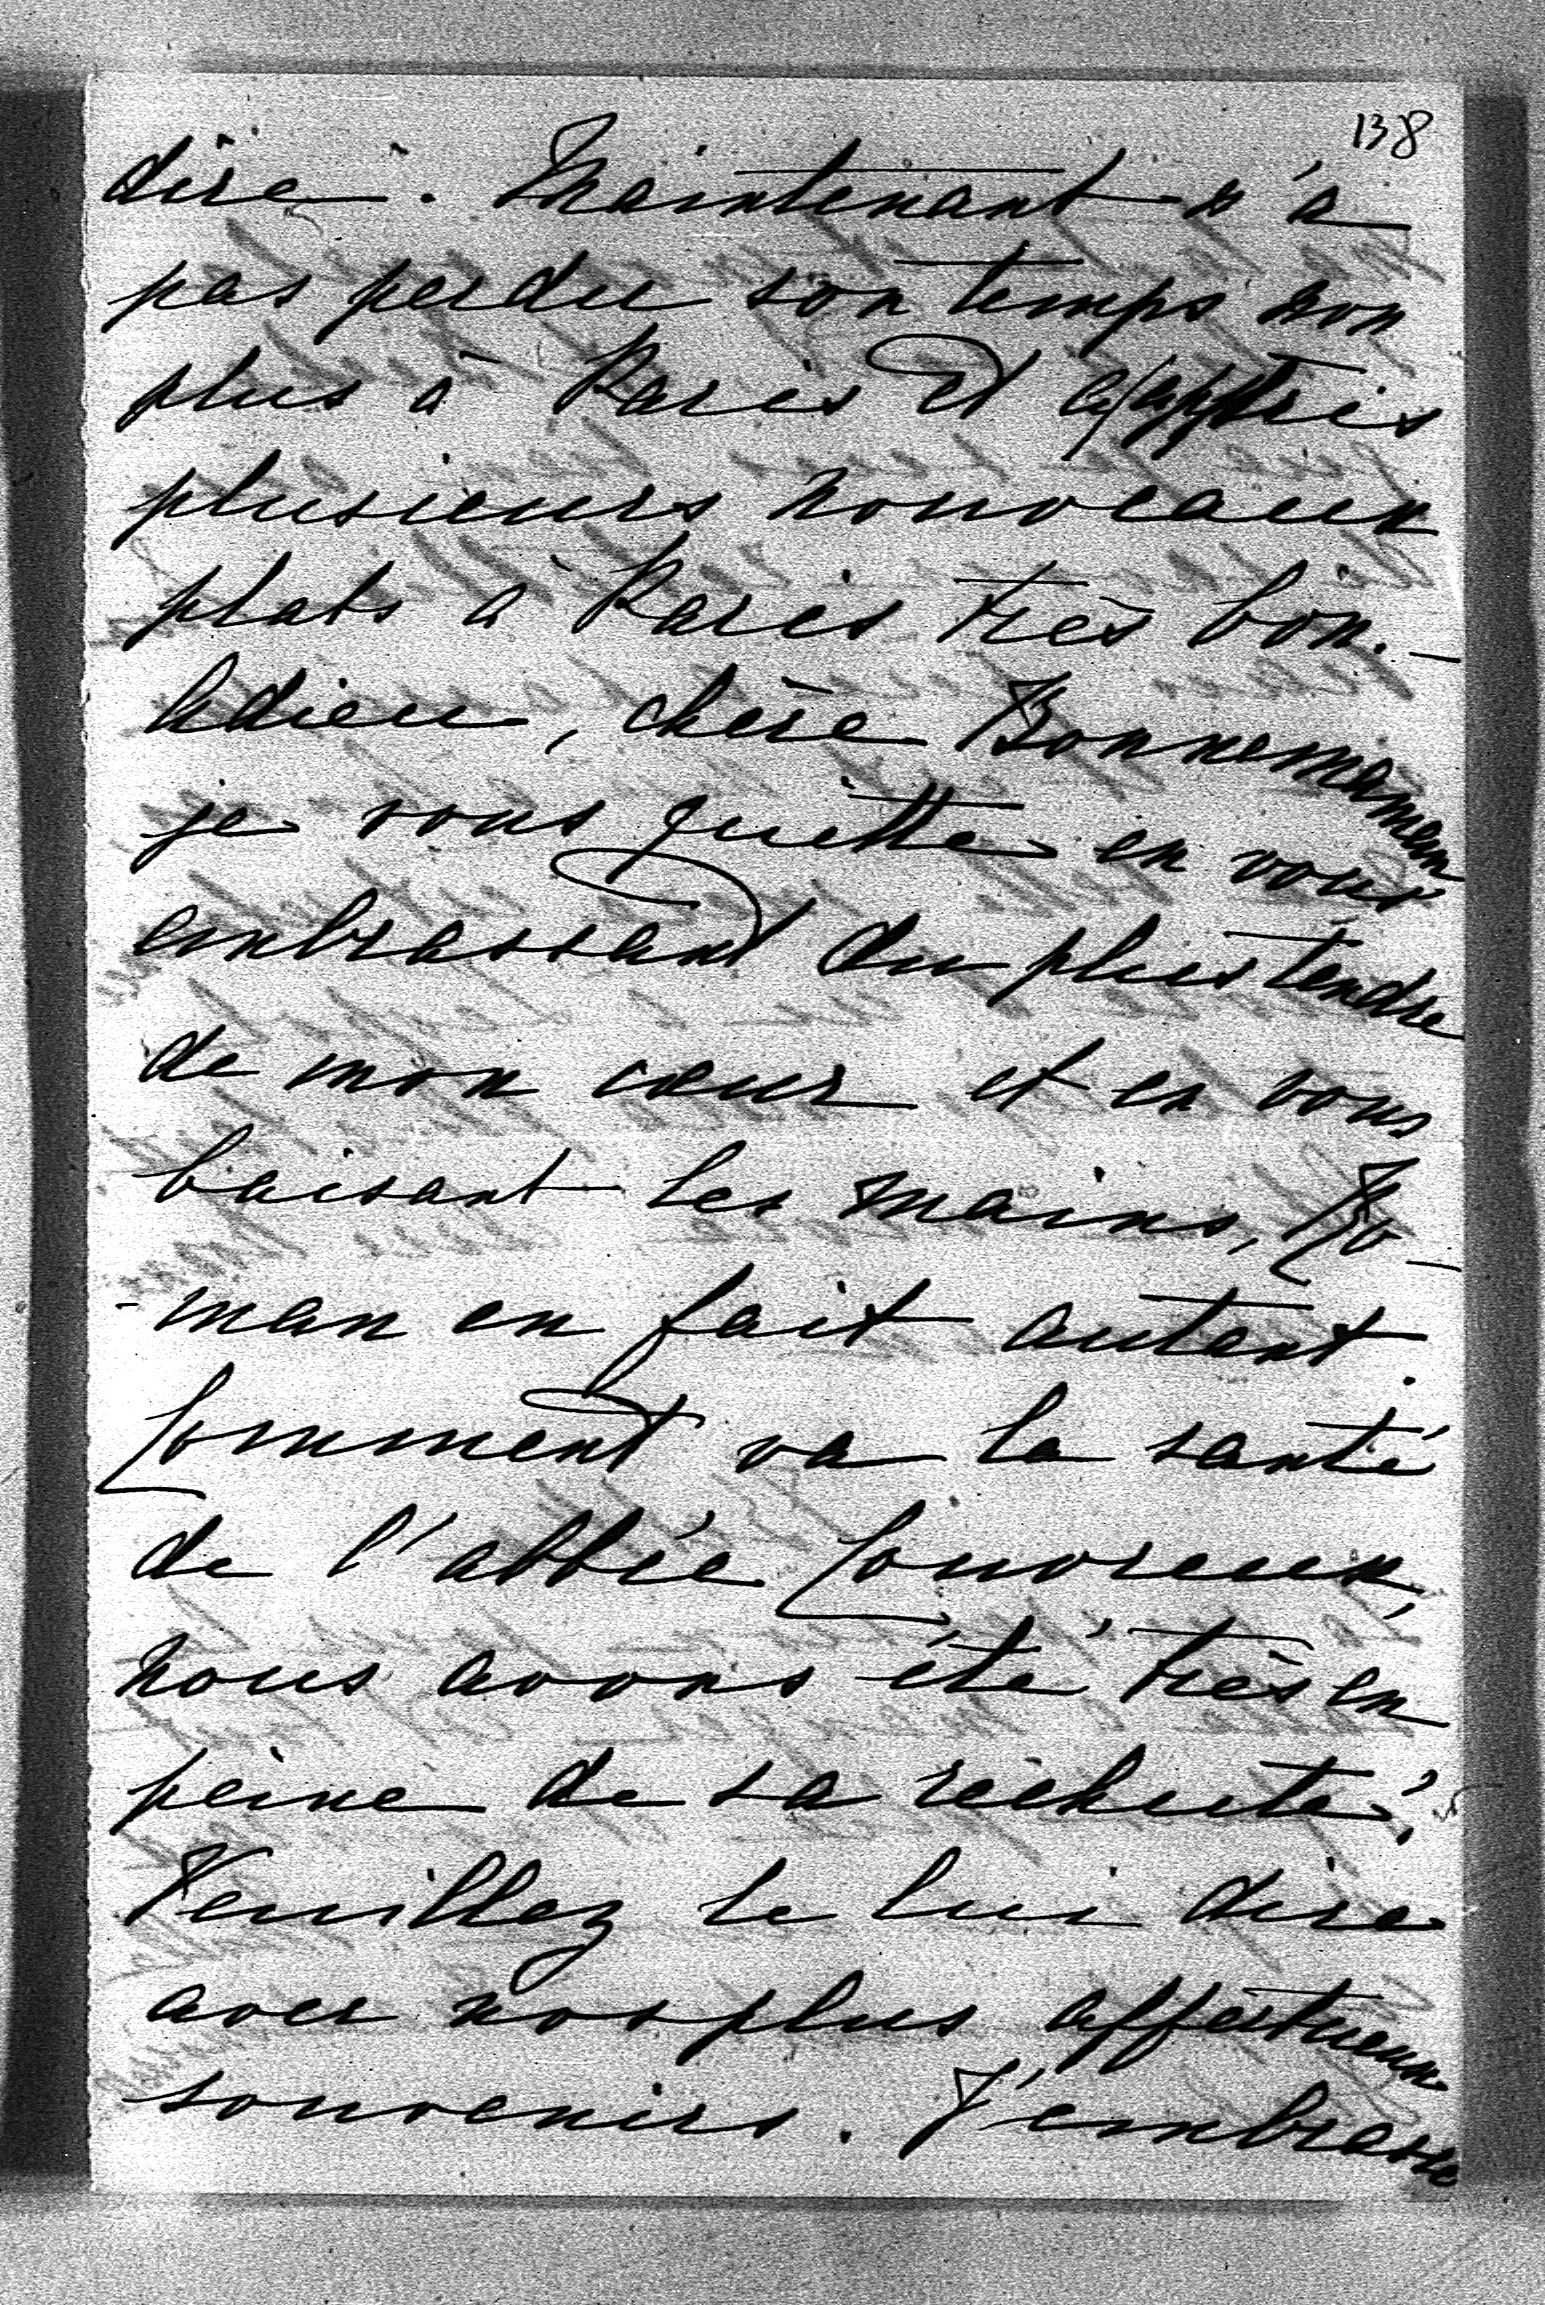 138
dire. Maintenant n'a
pas perdu son temps non
plus à Paris et a appris
plusieurs nouveaux
plats à Paris très bon. —
Adieu, chère Bonnemaman
je vous quitte en vous
embrassant du plus tendre
de mon cœur et en vous
baisant les mains, Ro-
-man en fait autant.
Comment va la santé
de l'abbée Couvreux,
nous avons été très en
peine de sa réchute!
Veuillez le lui dire
avec nos plus affectueux
souvenirs. J'embrasse